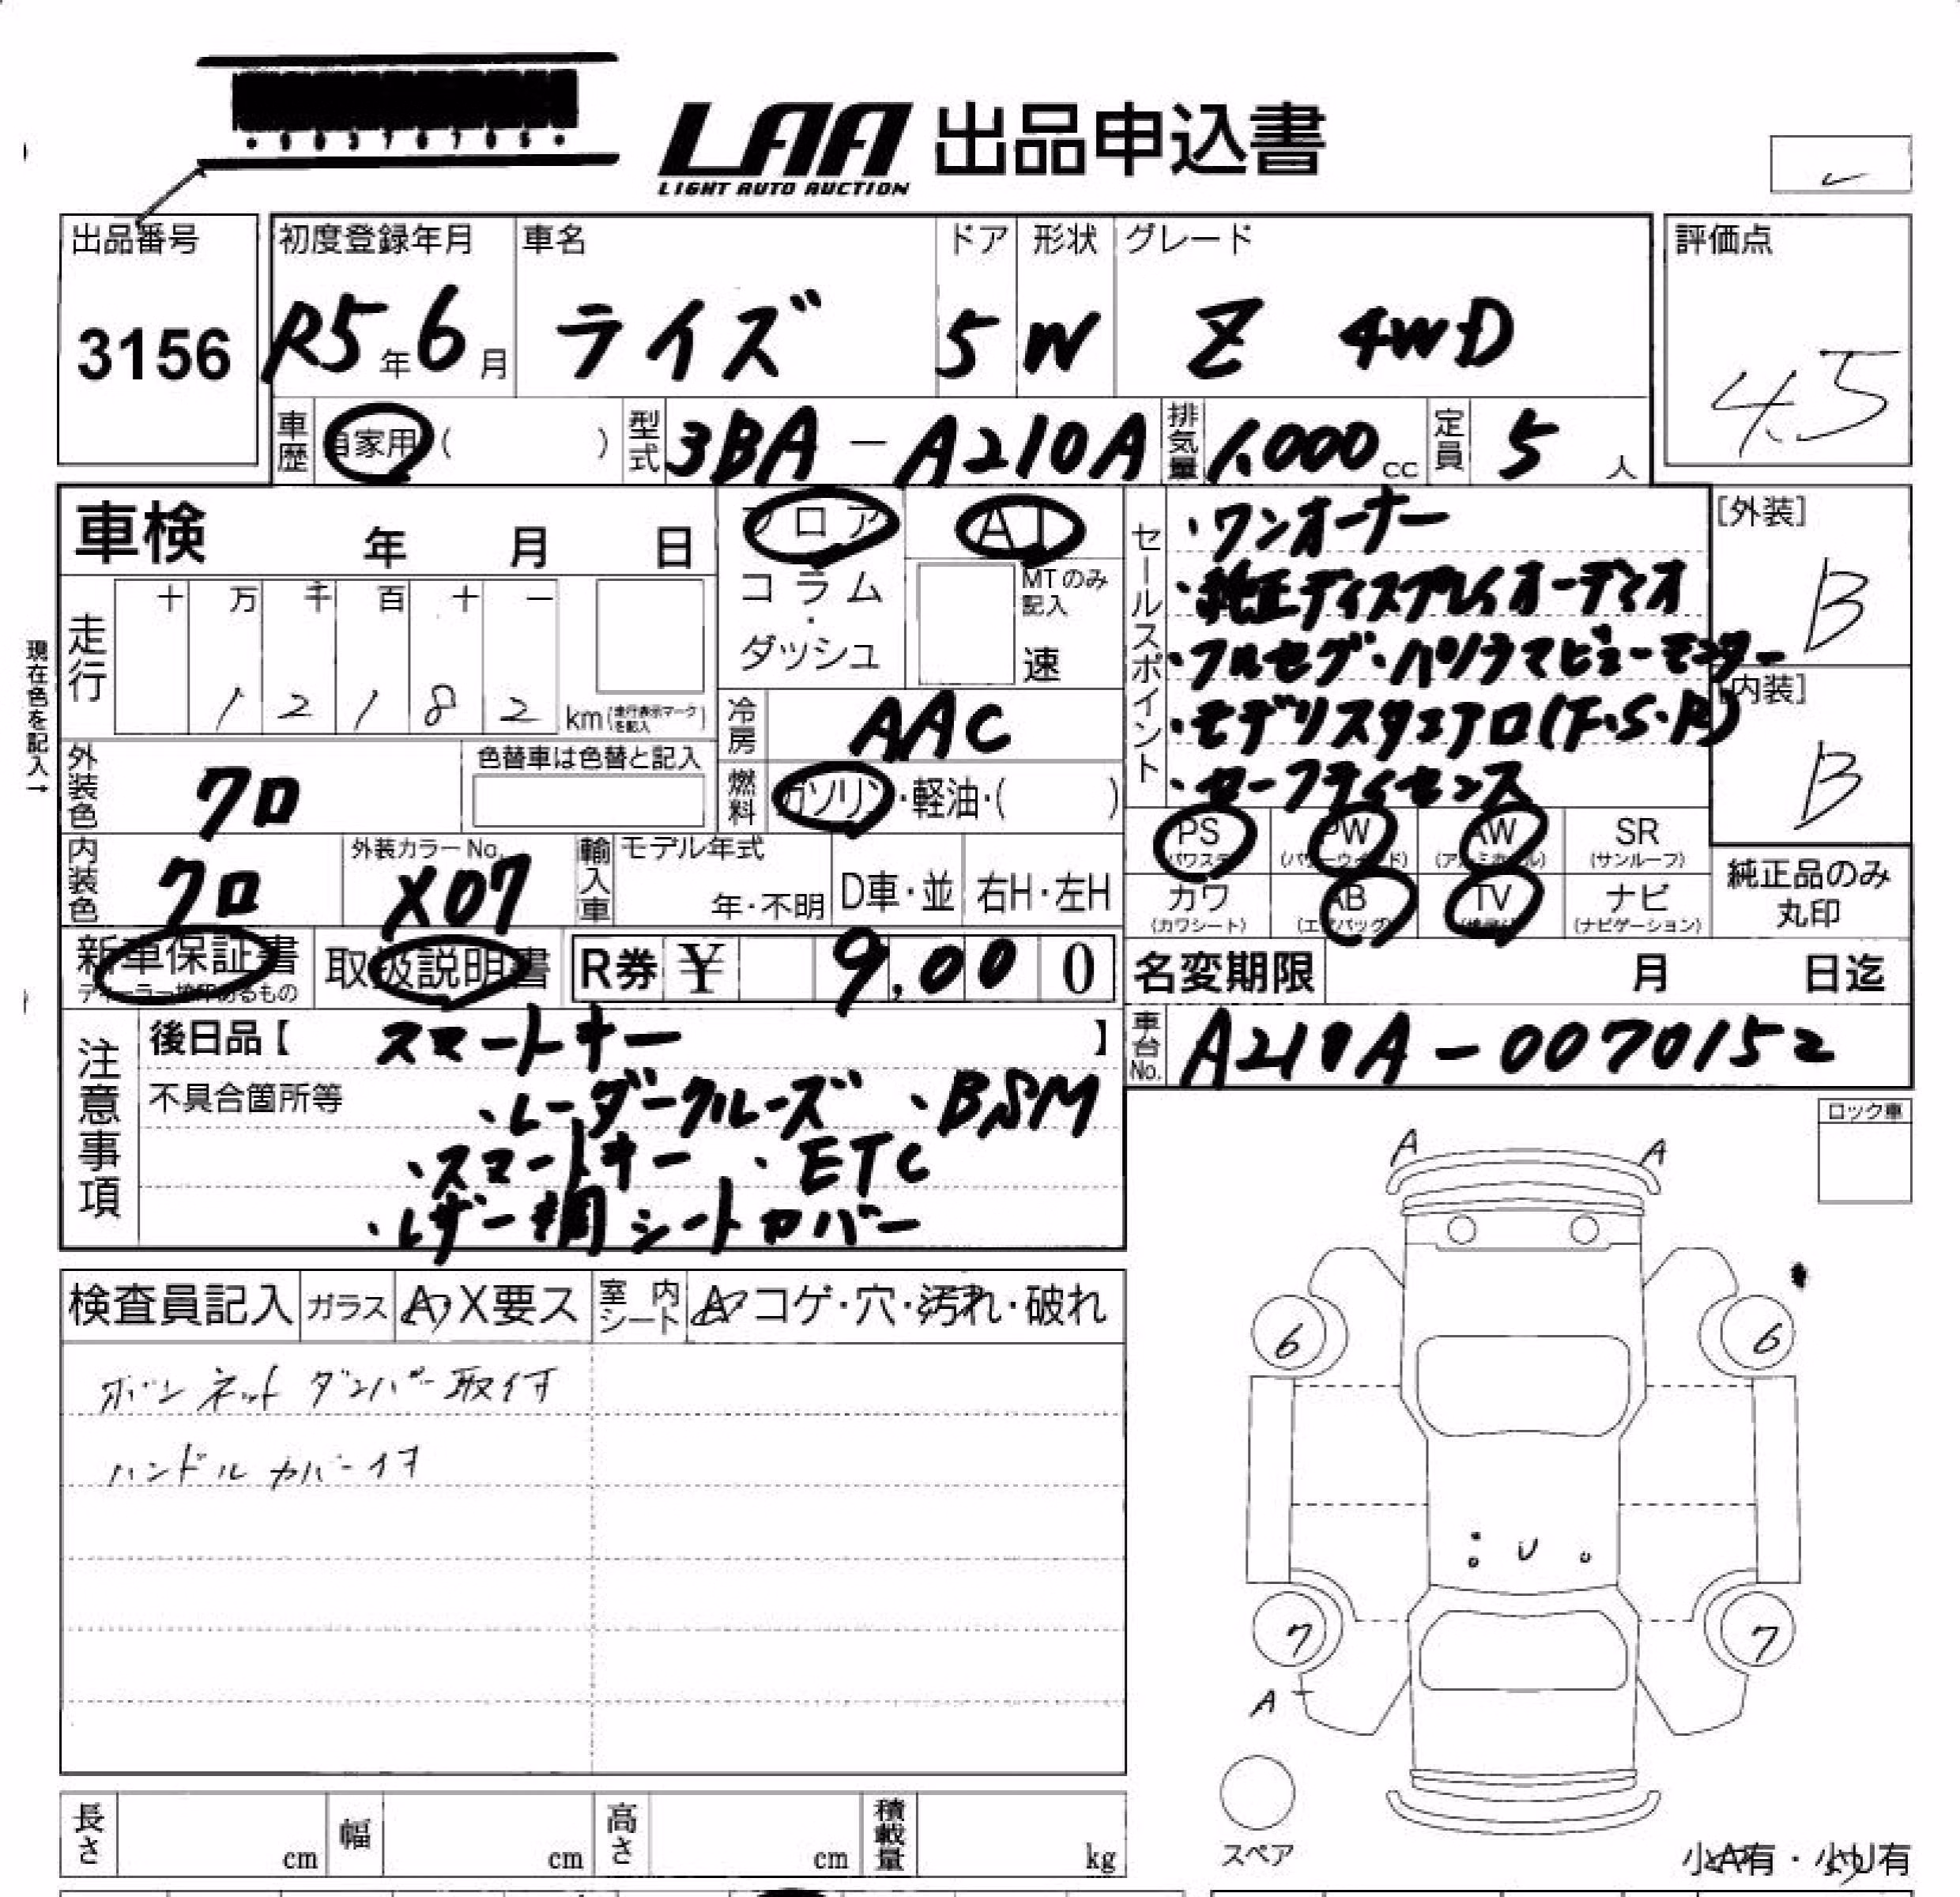 LAA 出品申込書
LIGHT AUTO AUCTION
出品番号
3156
初度登録年月
R5年6月
車名
ライズ
ドア
5
形状
W
グレード
Z 4WD
評価点
4.5
車歴
自家用 ( )
型式
3BA-A210A
排気量
1,000 cc
定員
5 人
車検 年 月 日
フロア
コラム
・
ダッシュ
AT
MTのみ記入
速
セールスポイント
・ワンオーナー
・純正ディスプレイオーディオ
・フルセグ・パノラマビューモニター
・モデリスタエアロ(F・S・R)
・セーフティセンス
[外装]
B
[内装]
B
現在色を記入→
走行
十 万 千 百 十 一
1 2 1 8 2
km(走行表示マークを記入)
冷房
AAC
燃料
ガソリン・軽油・( )
外装色
クロ
色替車は色替と記入
内装色
クロ
外装カラーNo.
X07
輸入車
モデル年式
年・不明
D車・並
右H・左H
PS (パワステ)
PW (パワーウインド)
AW (アルミホイール)
SR (サンルーフ)
カワ (カワシート)
AB (エアバッグ)
TV
ナビ (ナビゲーション)
純正品のみ
丸印
新車保証書
ディーラー捺印あるもの
取扱説明書
R券 ¥ 9,000
名変期限 月 日迄
車台No.
A210A-0070152
注意事項
後日品【 スマートキー 】
不具合箇所等
・レーダークルーズ ・BSM
・スマートキー ・ETC
・レザー調シートカバー
ロック車
検査員記入
ガラス
A・X要ス
室内シート
A・コゲ・穴・汚れ・破れ
ボンネットダンパー取付
ハンドルカバー付
A A
6 6
U
7 7
A
スペア
長さ cm
幅 cm
高さ cm
積載量 kg
小A有・小U有